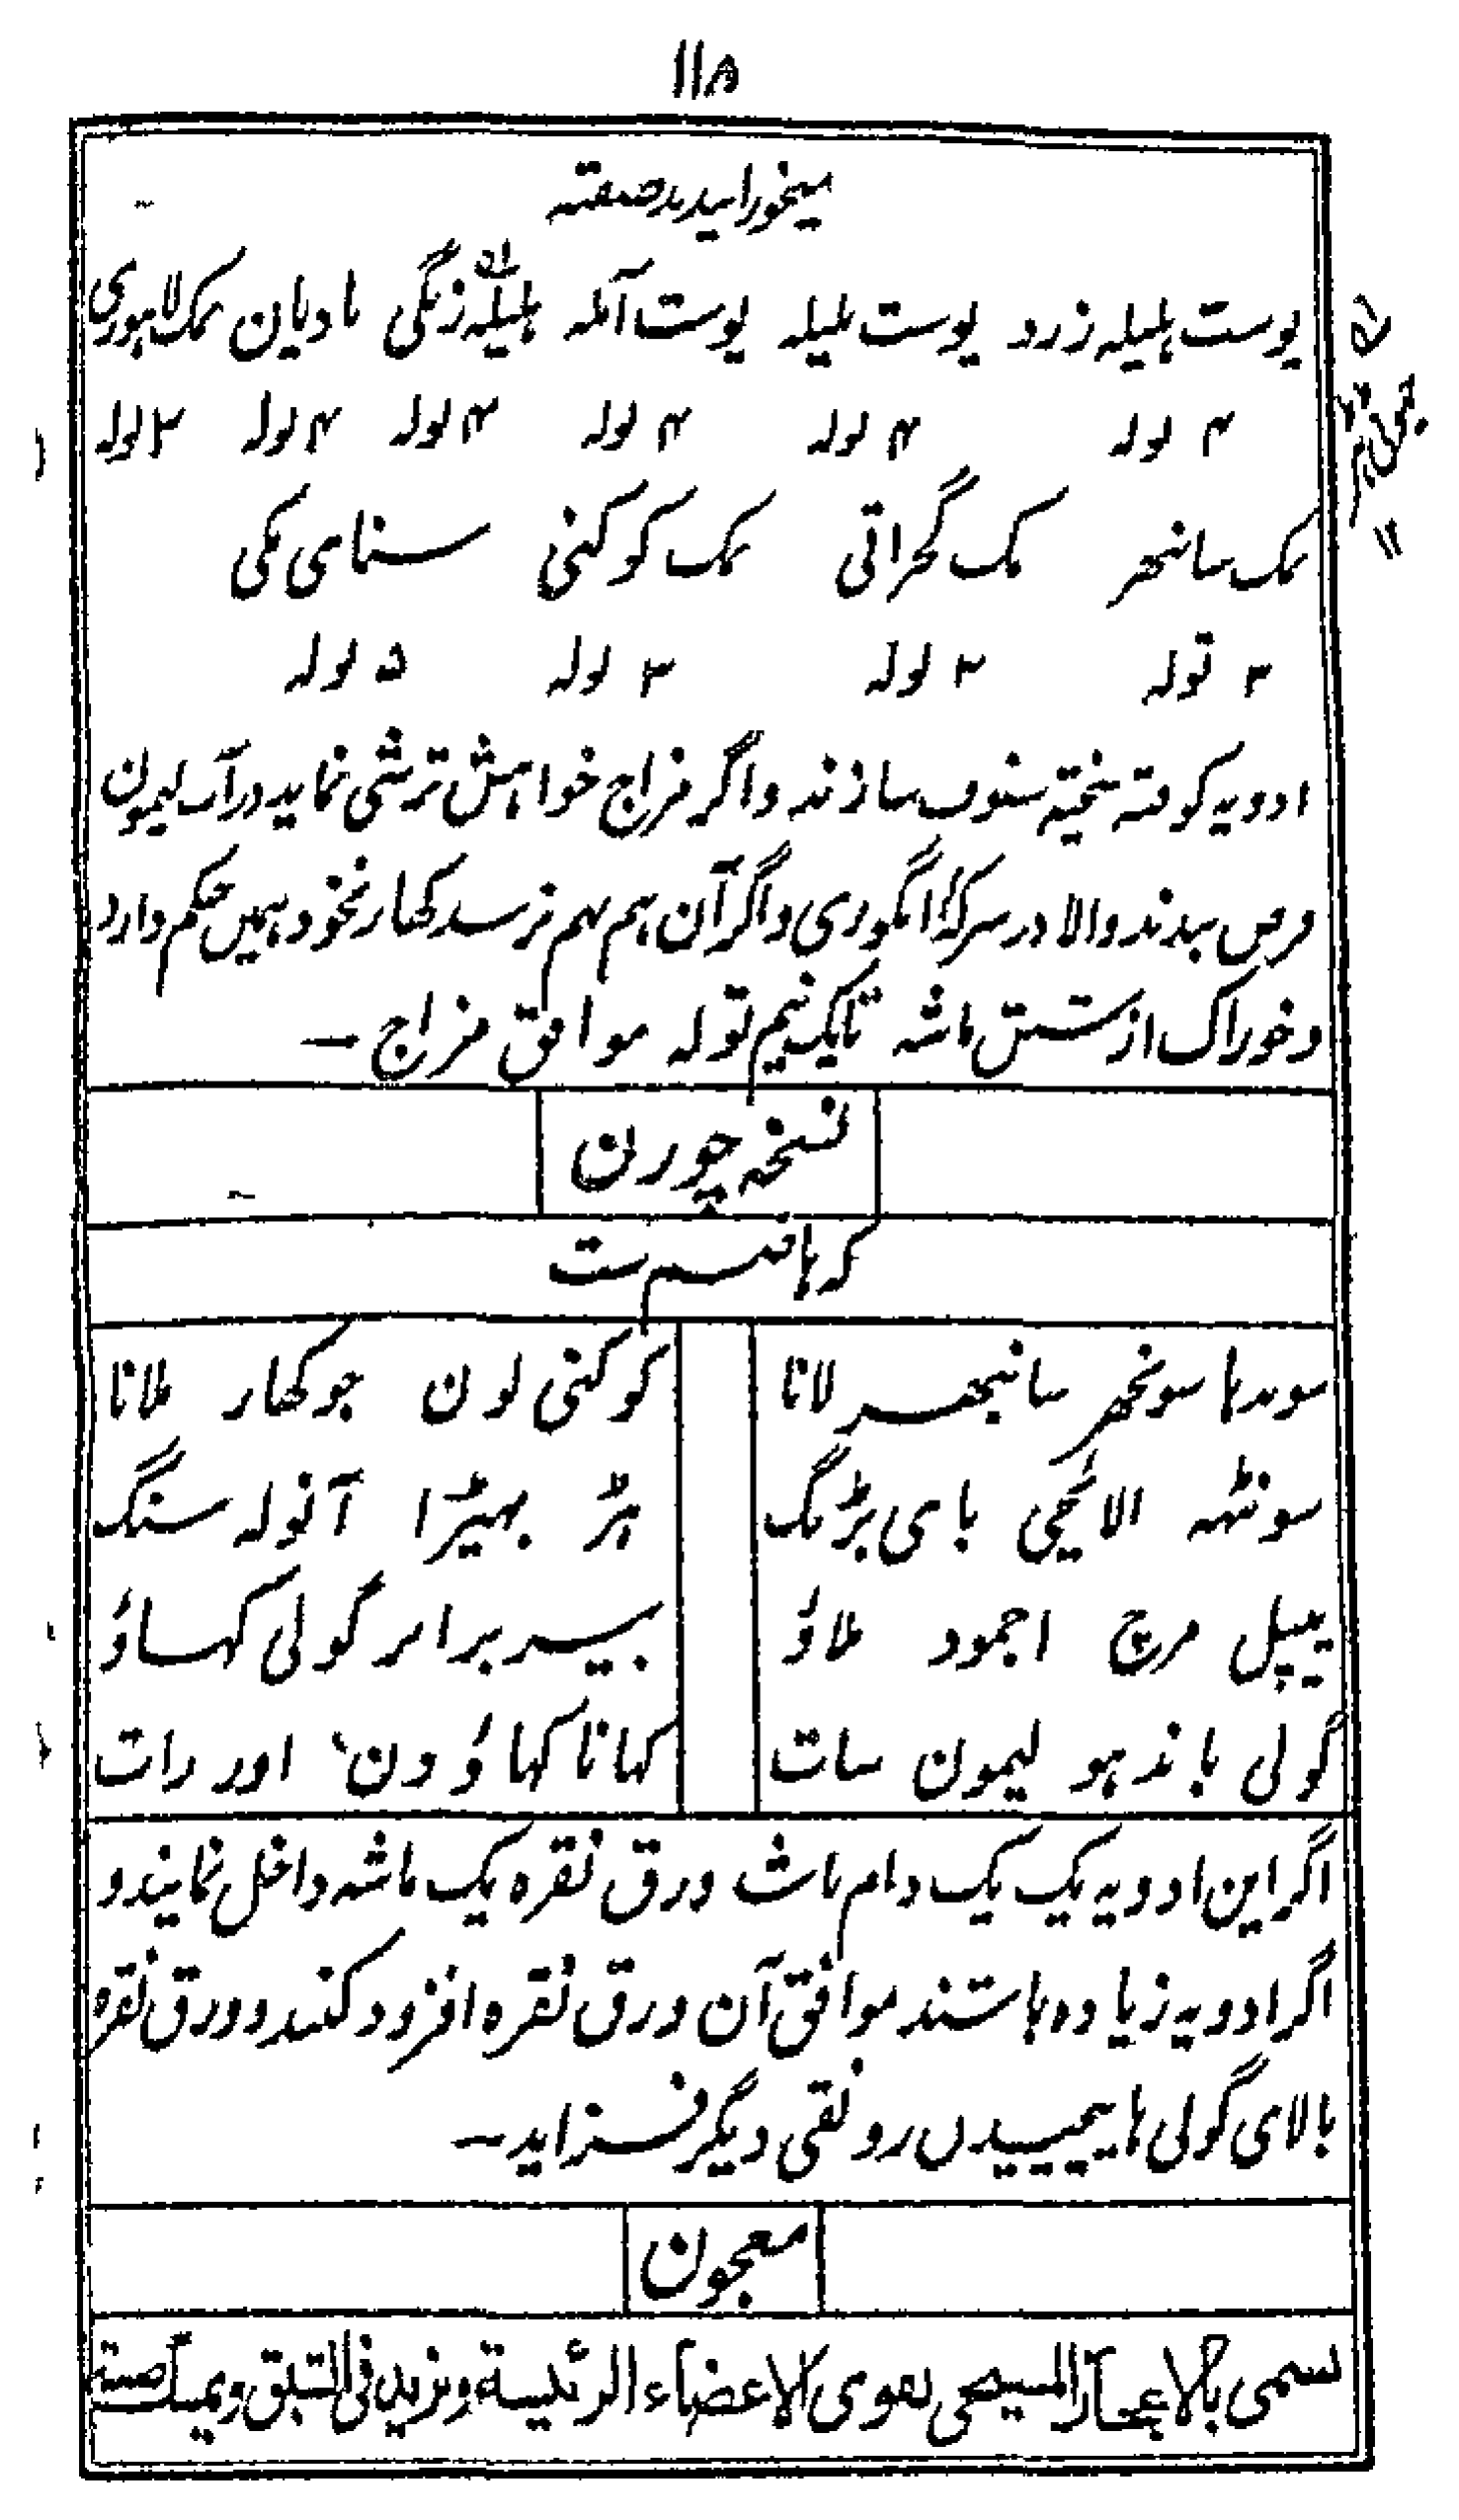 ۱۱۸
میخورانیدند صفته
پوست ہلیلہ زرد پوست بلیلہ پوست آملہ ہلیلہ زنگی بادیان نمک لاہوری
۴ تولہ ۴ تولہ ۴ تولہ ۴ تولہ ۴ تولہ ۳ تولہ
نمک سانبھر نمک گجراتی نمک کوکنی سنای مکی
۳ تولہ ۳ تولہ ۳ تولہ ۵ تولہ
ادویہ کوفتہ بیختہ سفوف سازند و اگر مزاج خواہش ترشی نماید در آب لیمون
قرص بندند والا در سرکہ انگوری و اگر آن ہم بہم نرسد کھار نخود ہمین حکم دارد
و خوراک از شش ماشہ تا یک نیم تولہ موافق مزاج
نسخہ چورن
سوندہا سونچھر سانبھر لانا
کوکنی لون جوکھار ملانا
سونٹھہ الائچی بای بڑنگ
ہڑ بہیڑا آنولہ سنگ
پیپل مرچ اجمود ملاؤ
بیر برابر گولی کہاؤ
گولی باندہو لیمون سات
کہانا کہاؤ دن اور رات
اگر این ادویہ یک یک دام باشد ورق نقرہ یک ماشہ داخل نمایند و
اگر ادویہ زیادہ باشند موافق آن ورق نقرہ افزود کنند و ورق نقرہ
بالای گولی ہا پیچیدن رونقی دیگر فزاید
معجون
یسمی بالاعجاز المسیحی یقوی الاعضاء الرئیسة ویزید فی الشبق ویمسک صفتہ